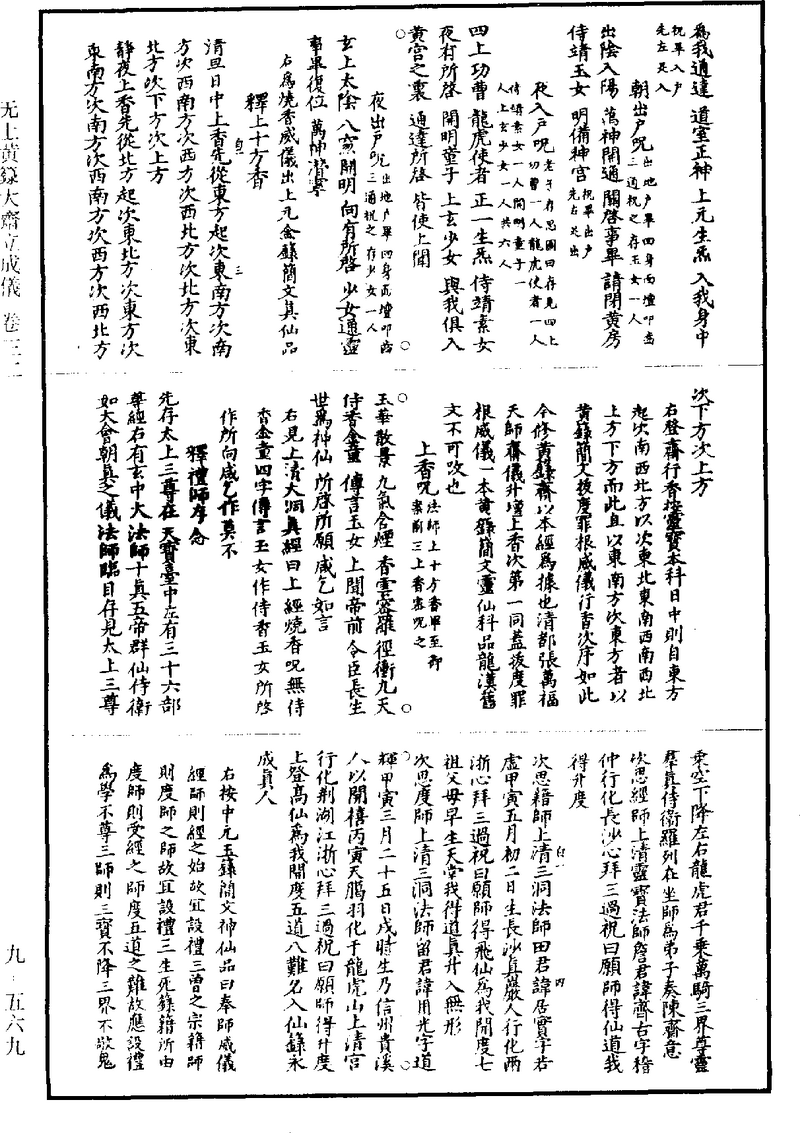 為我通達 道室正神 上元生炁 入我身中
祝畢入戶
先左足入
朝出戶呪出地戶畢四身面壇叩齒
三過祝之存玉女一人
出陰入陽 萬神開通 關啓事畢 請閉黃房
侍靖玉女 明備神宮祝畢出戶
先右足出
夜入戶呪老子存思圖曰存見四上
功曹一人龍虎使者一人
侍靖素女一人開明童子一
人上玄少女一人共六人
四上功曹 龍虎使者 正一生炁 侍靖素女
夜有所啓 開明童子 上玄少女 與我俱入
黃宮之裏 通達所啓 皆使上聞
夜出戶呪出地戶畢四身面壇叩齒
三過祝之存少女一人
玄上太陰 八窓開明 向有所啓 少女通靈
事畢復位 萬神潛寧
右為燒香威儀出上元金籙簡文真仙品
釋上十方香
清旦日中上香先從東方起次東南方次南
方次西南方次西方次西北方次北方次東
北方次下方次上方
靜夜上香先從北方起次東北方次東方次
東南方次南方次西南方次西方次西北方
次下方次上方
右登齋行香按靈寶本科日中則自東方
起次南西北方以次東北東南西南西北
上方下方而此且以東南方次東方者以
黃籙簡文拔度罪根威儀行香次序如此
今修黃籙齋以本經為據也清都張萬福
天師齋儀升壇上香次第一同蓋拔度罪
根威儀一本黃籙簡文靈仙科品龍漢舊
文不可改也
上香呪法師上十方香畢至御
案前三上香密呪之
玉華散景 九氣含煙 香雲密羅 徑衝九天
侍香金童 傳言玉女 上聞帝前 令臣長生
世為神仙 所啓所願 咸乞如言
右見上清大洞真經曰上經燒香呪無侍
香金童四字傳言玉女作侍香玉女所啓
作所向咸乞作莫不
釋禮師存念
先存太上三尊在天寶臺中左有三十六部
尊經右有玄中大法師十真五帝群仙侍衛
如大會朝真之儀法師臨目存見太上三尊
乘空下降左右龍虎君千乘萬騎三界尊靈
羣真侍衛羅列在坐師為弟子奏陳齋意
次思經師上清靈寶法師詹君諱齊古字稽
仲行化長沙心拜三過祝曰願師得仙道我
得升度
次思籍師上清三洞法師田君諱居實字若
虛甲寅五月初二日生長沙真巖人行化兩
浙心拜三過祝曰願師得飛仙為我開度七
祖父母早生天堂我得道真升入無形
次思度師上清三洞法師留君諱用光字道
輝甲寅三月二十五日戌時生乃信州貴溪
人以開禧丙寅天臘羽化于龍虎山上清宮
行化荆湖江浙心拜三過祝曰願師得升度
上登高仙為我開度五道八難名入仙籙永
成真人
右按中元玉籙簡文神仙品曰奉師威儀
經師則經之始故宜設禮三曾之宗籍師
則度師之師故宜設禮三生死錄籍所由
度師則受經之師度五道之難故應設禮
為學不尊三師則三寶不降三界不敬鬼
无上黃籙大齋立成儀 卷三二
九・五六九